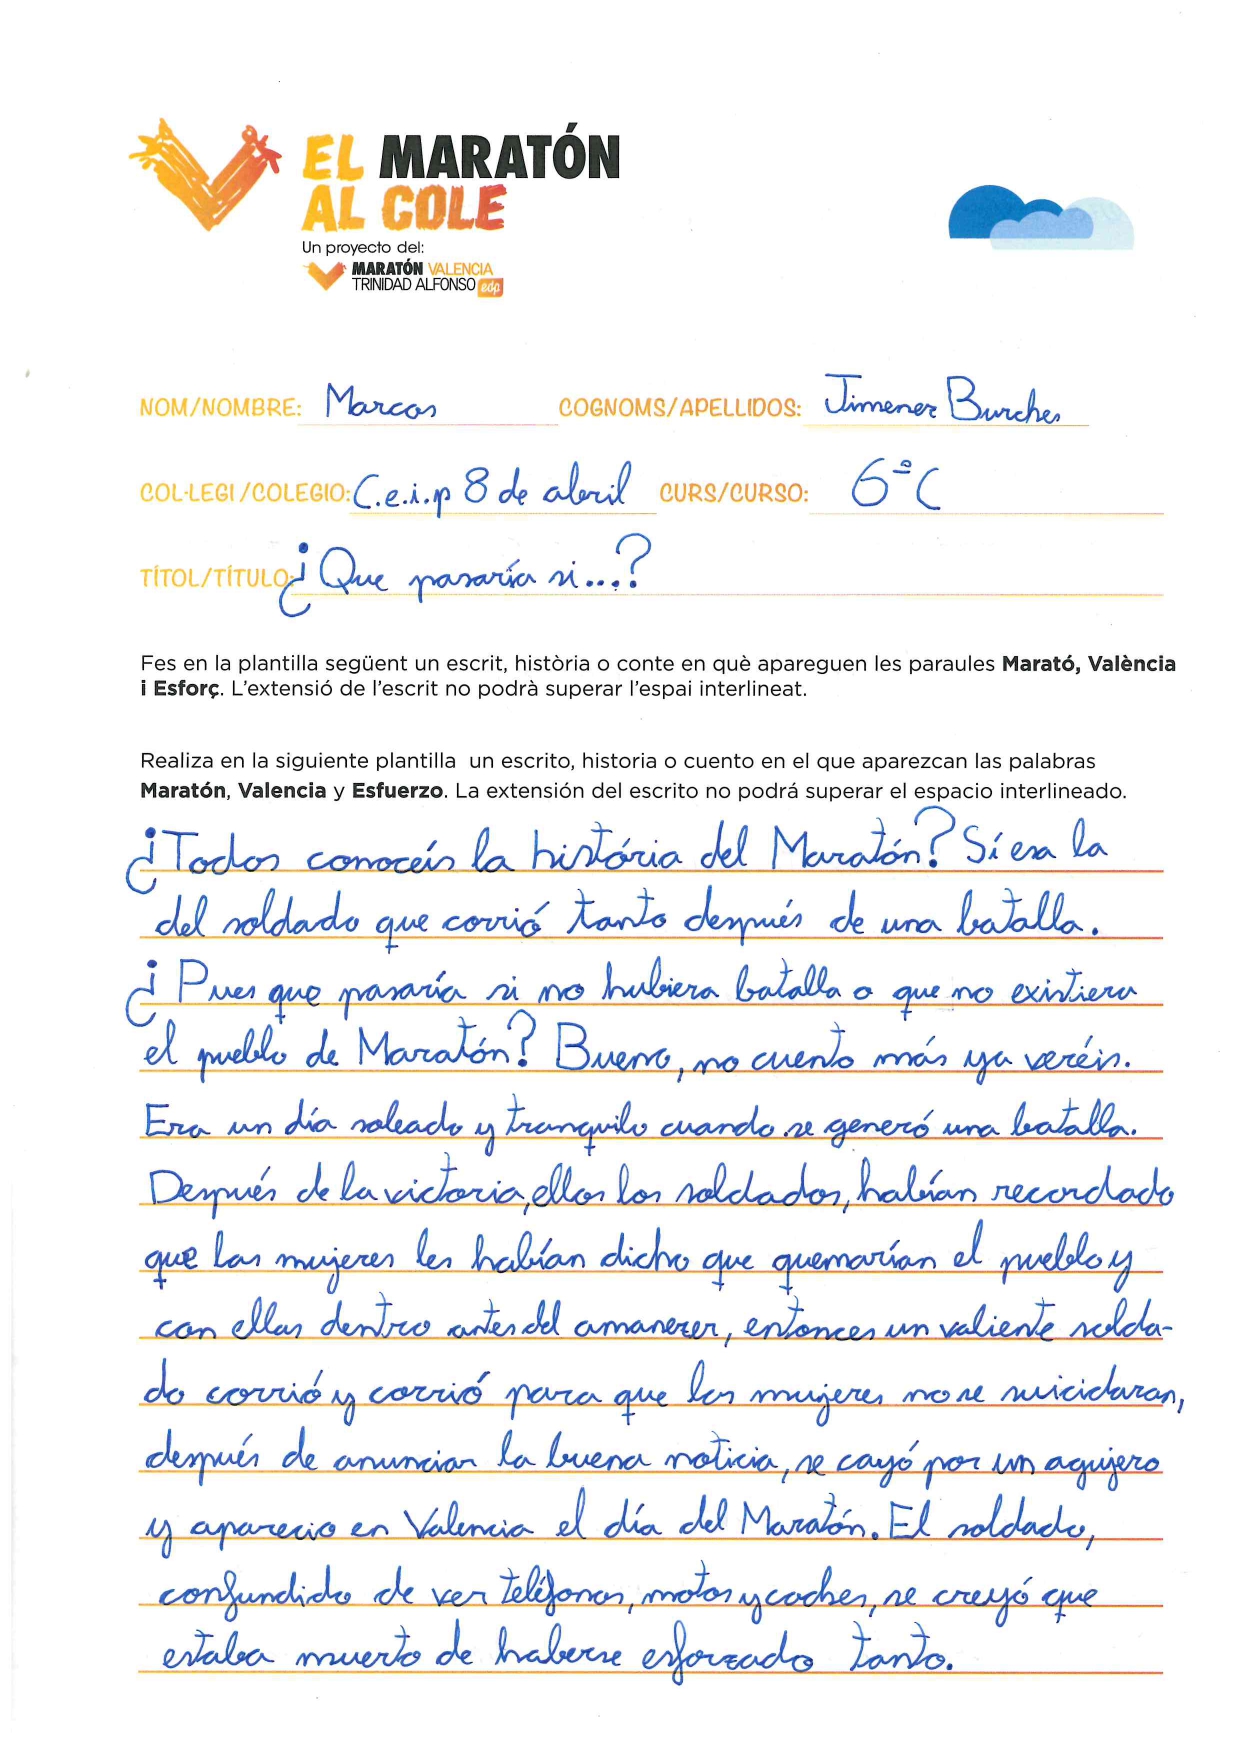 EL MARATÓN
AL COLE
Un proyecto del:
MARATÓN VALENCIA
TRINIDAD ALFONSO edp
NOM/NOMBRE: Marcos COGNOMS/APELLIDOS: Jimenez Burches
COL·LEGI/COLEGIO: C.e.i.p 8 de abril CURS/CURSO: 6º C
TÍTOL/TÍTULO: ¿Que pasaría si...?
Fes en la plantilla següent un escrit, història o conte en què apareguen les paraules Marató, València
i Esforç. L'extensió de l'escrit no podrà superar l'espai interlineat.
Realiza en la siguiente plantilla un escrito, historia o cuento en el que aparezcan las palabras
Maratón, Valencia y Esfuerzo. La extensión del escrito no podrá superar el espacio interlineado.
¿Todos conocéis la história del Maratón? Sí esa la
del soldado que corrió tanto después de una batalla.
¿Pues que pasaría si no hubiera batalla o que no existiera
el pueblo de Maratón? Bueno, no cuento más ya veréis.
Era un día soleado y tranquilo cuando se generó una batalla.
Después de la victoria, ellos los soldados, habían recordado
que las mujeres les habían dicho que quemarían el pueblo y
con ellas dentro antes del amanezer, entonces un valiente solda-
do corrió y corrió para que las mujeres no se suicidaran,
después de anunciar la buena noticia, se cayó por un agujero
y aparecio en Valencia el día del Maratón. El soldado,
confundido de ver teléfonos, motos y coches, se creyó que
estaba muerto de haberse esforzado tanto.